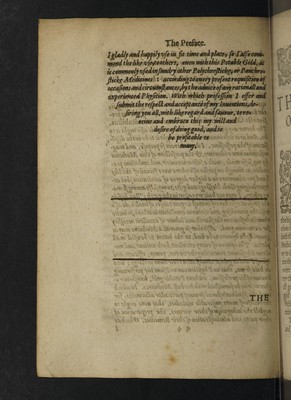 The Preface.
I gladly and happily vse in fit time and place, so I also com-
mend the like vse to others, euen with this Potable Gold, as
is commonly vsed in sundry other Polychrestickes, or Panchre-
sticke Medicines: according to euery present requisition of
occasions and circumstances, by the aduice of any rationall and
experienced Physition. With which profession I offer and
submit the respect and acceptance of my Inuentions, de-
siring you all, with like regard and fauour, to re-
ceiue and embrace this my will and
desire of doing good, and to
be profitable to
many.
THE